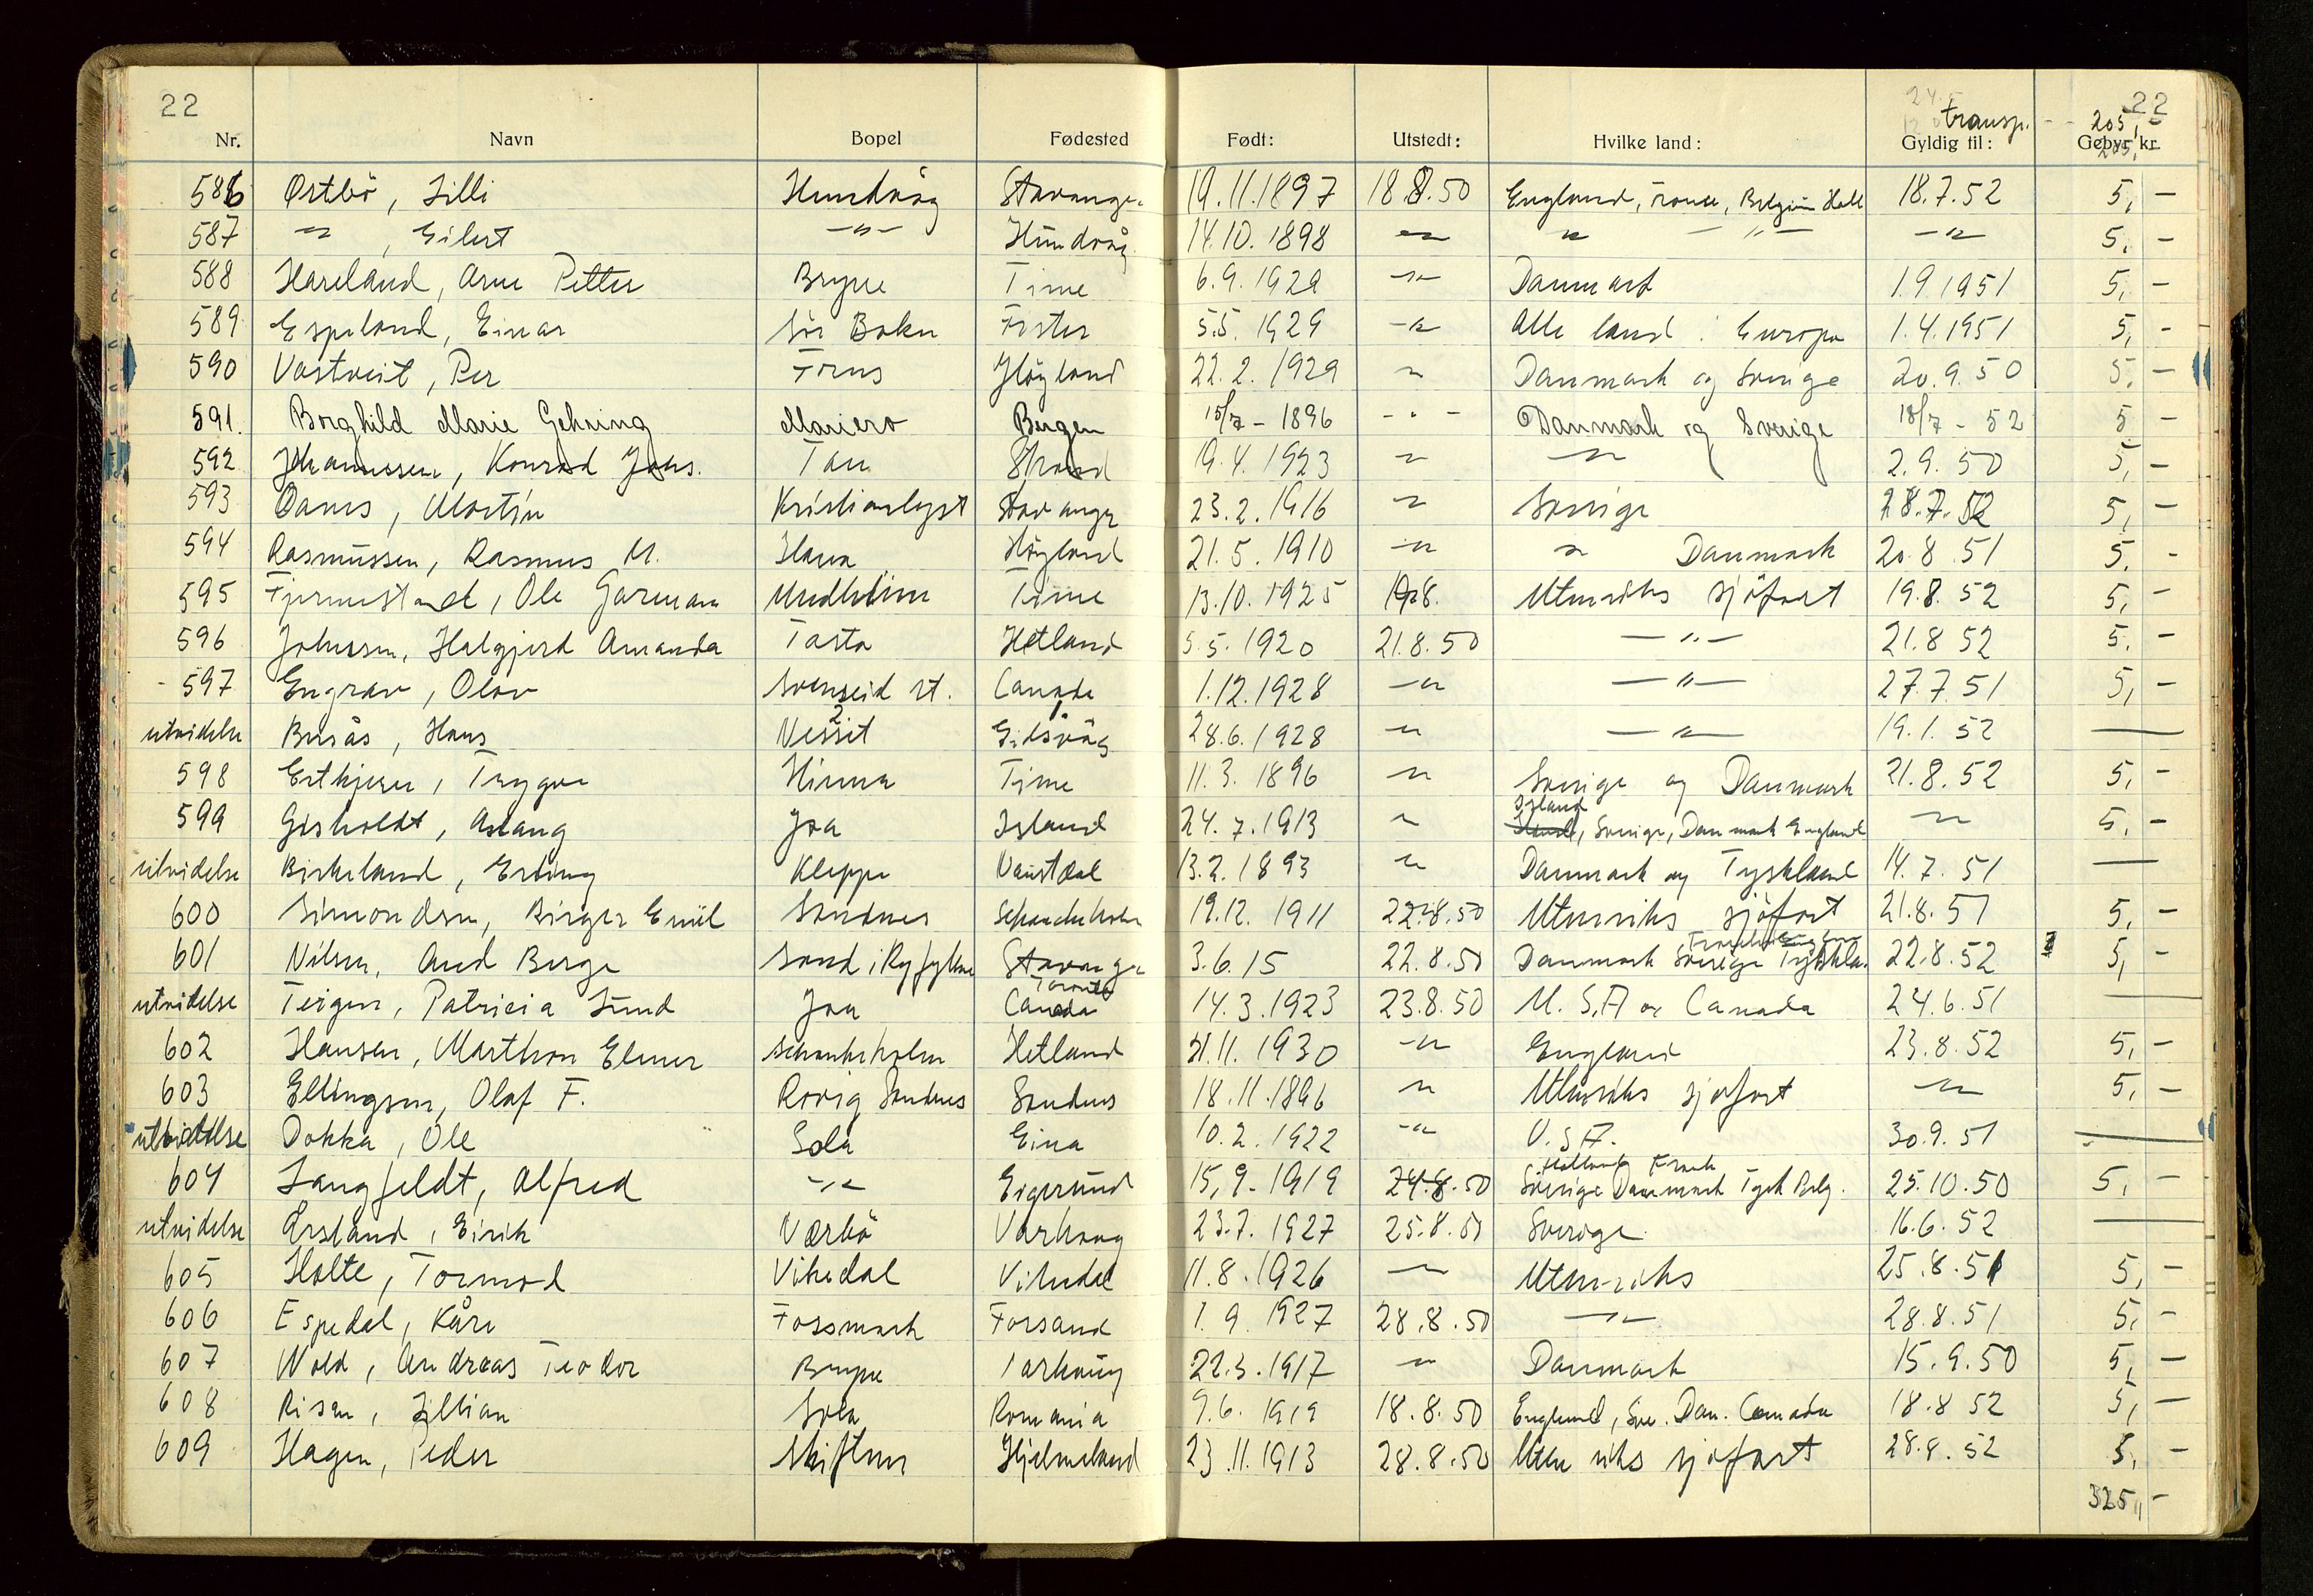 22 22
transp. - - 205,-
Nr. Navn Bopel Fødested Født: Utstedt: Hvilke land: Gyldig til: Gebyr kr.
586 Østbö, Lilli Hundvåg Stavanger 19.11.1897 18.8.50 England, Belgia Holl 18.7.52 5,-
587 -"- , Eilert -"- Hundvåg 14.10.1898 -"- -"- -"- -"- 5,-
588 Hareland, Arne Petter Bryne Time 6.9.1929 -"- Danmark 1.9.1951 5,-
589 Espeland, Einar Sör Bokn 5.5.1929 -"- Alle land i Europa 1.4.1951 5,-
590 Vastveit, Per Forus Höyland 22.2.1929 " Danmark og Sverige 20.9.50 5,-
591. Borghild Marie Gehring Mariero Bergen 15/7-1896 -"- Danmark og Sverige 18/7-52 5-
592 Johannessen, Konrad Johs. Tau Strand 19.4.1923 " -"- 2.9.50 5,-
593 Oanes, Martin Kristianlyst Stavanger 23.2.1916 " Sverige 28.7.52 5,-
594 Rasmussen, Rasmus M. Hana Höyland 21.5.1910 -"- " Danmark 20.8.51 5,-
595 Ole Garmann Undheim Time 13.10.1925 19.8. Utenriks sjöfart 19.8.52 5,-
596 Johnsen, Halgjerd Amanda Tasta Hetland 5.5.1920 21.8.50 -"- 21.8.52 5,-
597 Engrav, Olav st. Canada 1.12.1928 -"- -"- 27.7.51 5,-
utvidelse Busås, Hans 28.6.1928 " -"- 19.1.52 —
598 Trygve Hinna Time 11.3.1896 " Sverige og Danmark 21.8.52 5,-
Island
599 Gisholdt, Aslaug Joa Island 24.7.1913 " , Sverige, Danmark England " 5,-
utvidelse Birkeland, Erling Kleppe 13.2.1893 " Danmark og Tyskland 14.7.51 —
600 Simondsen, Birger Emil Sandnes 19.12.1911 22.8.50 Utenriks sjöfart 21.8.51 5,-
601 Nilsen, Aud Berge Sand i Ryfylke Stavanger 3.6.15 22.8.50 Danmark Sverige Tyskla. 22.8.52 5,-
utvidelse Teigen, Patricia Lund Joa Canada 14.3.1923 23.8.50 U.S.A og Canada 24.6.51 —
602 Hansen, Marthon Elmer Hetland 21.11.1930 -"- England 23.8.52 5,-
603 Ellingsen, Olaf F. Rovig Sandnes Sandnes 18.11.1896 " Utenriks sjöfart -"- 5,-
utvidelse Dokka, Ole Sola Eina 10.2.1922 -"- U.S.A. 30.9.51 —
Holland Frank
604 Langfeldt, Alfred -"- Eigersund 15.9.1919 24.8.50 Sverige Danmark Tysk Belg. 25.10.50 5,-
utvidelse Årsland, Eirik Varhaug 23.7.1927 25.8.50 Sverige 16.6.52 —
605 Holte, Tormod Vikedal Vikedal 11.8.1926 -"- Utenriks 25.8.51 5,-
606 Espedal, Kåre Fossmark Forsand 1.9.1927 28.8.50 -"- 28.8.51 5,-
607 Wold, Andreas Teodor Bryne Varhaug 22.3.1917 " Danmark 15.9.50 5,-
608 Risan, Lillian Sola Romania 9.6.1919 18.8.50 England, Sve. Dan. Canada 18.8.52 5,-
609 Hagen, Peder Skiftun Hjelmeland 23.11.1913 28.8.50 Utenriks sjöfart 28.8.52 5,-
325,-